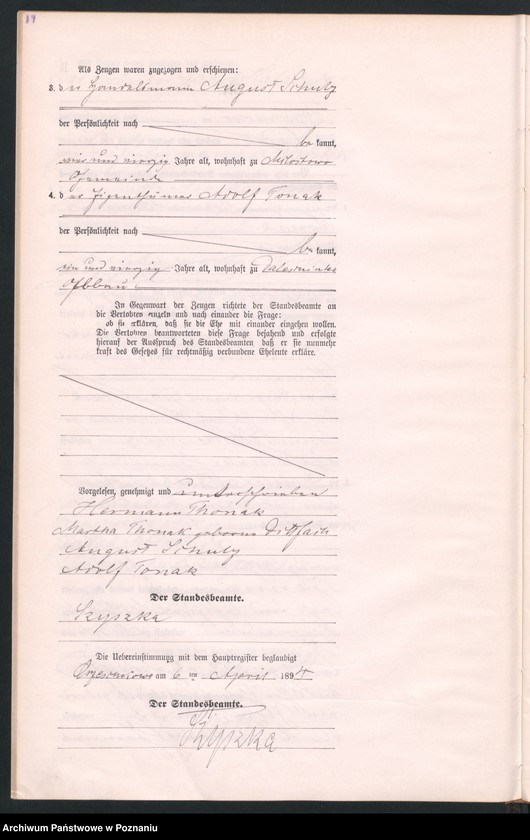 19
Als Zeugen waren zugezogen und erschienen:
3. der Handelsmann August Schulz
der Persönlichkeit nach
be kannt,
ein und vierzig Jahre alt, wohnhaft zu Milostowo
Gemeinde
4. der Eigenthümer Adolf Tonak
der Persönlichkeit nach
be kannt,
ein und vierzig Jahre alt, wohnhaft zu
Abbau
In Gegenwart der Zeugen richtete der Standesbeamte an
die Verlobten einzeln und nach einander die Frage:
ob sie erklären, daß sie die Ehe mit einander eingehen wollen.
Die Verlobten beantworteten diese Frage bejahend und erfolgte
hierauf der Ausspruch des Standesbeamten, daß er sie nunmehr
kraft des Gesetzes für rechtmäßig verbundene Eheleute erkläre.
Vorgelesen, genehmigt und unterschrieben
Hermann Thonak
Martha Thonak geborene Dittfach
August Schulz
Adolf Tonak
Der Standesbeamte.
Szyszka
Die Uebereinstimmung mit dem Hauptregister beglaubigt
am 6 ten April 1894
Der Standesbeamte.
Szyszka
Archiwum Państwowe w Poznaniu